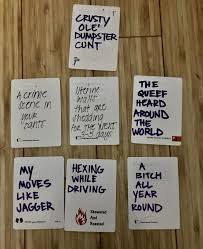 CRUSTY
OLE'
DUMPSTER
CUNT
A crime
scene in
your
pants
Uterine
walls
that are
shedding
for the next
3-5 days
THE
QUEEF
HEARD
AROUND
THE
WORLD
MY
MOVES
LIKE
JAGGER
HEXING
WHILE
DRIVING
A
BITCH
ALL
YEAR
ROUND